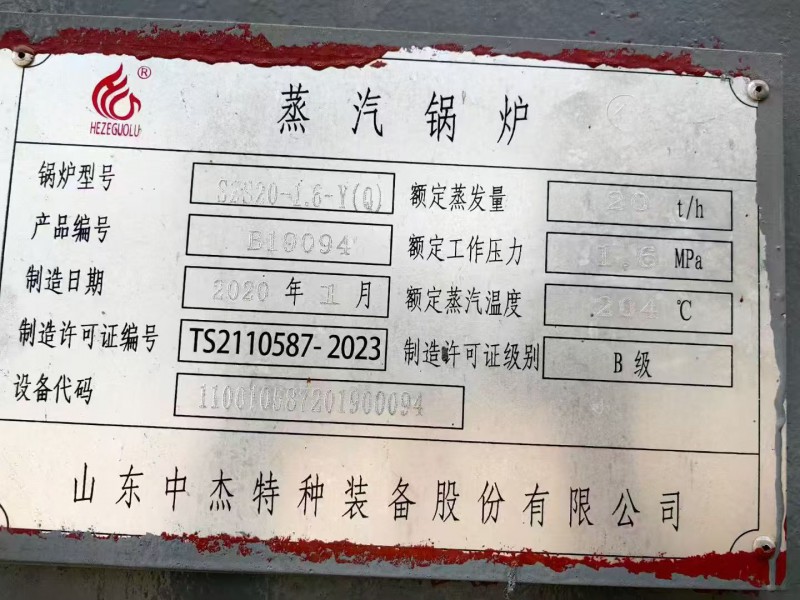 ®
HEZEGUOLU
蒸汽锅炉
锅炉型号 SZS20-1.6-Y(Q) 额定蒸发量 20 t/h
产品编号 B19094 额定工作压力 1.6 MPa
制造日期 2020 年 1 月 额定蒸汽温度 204 ℃
制造许可证编号 TS2110587-2023 制造许可证级别 B 级
设备代码 110010587201900094
山东中杰特种装备股份有限公司